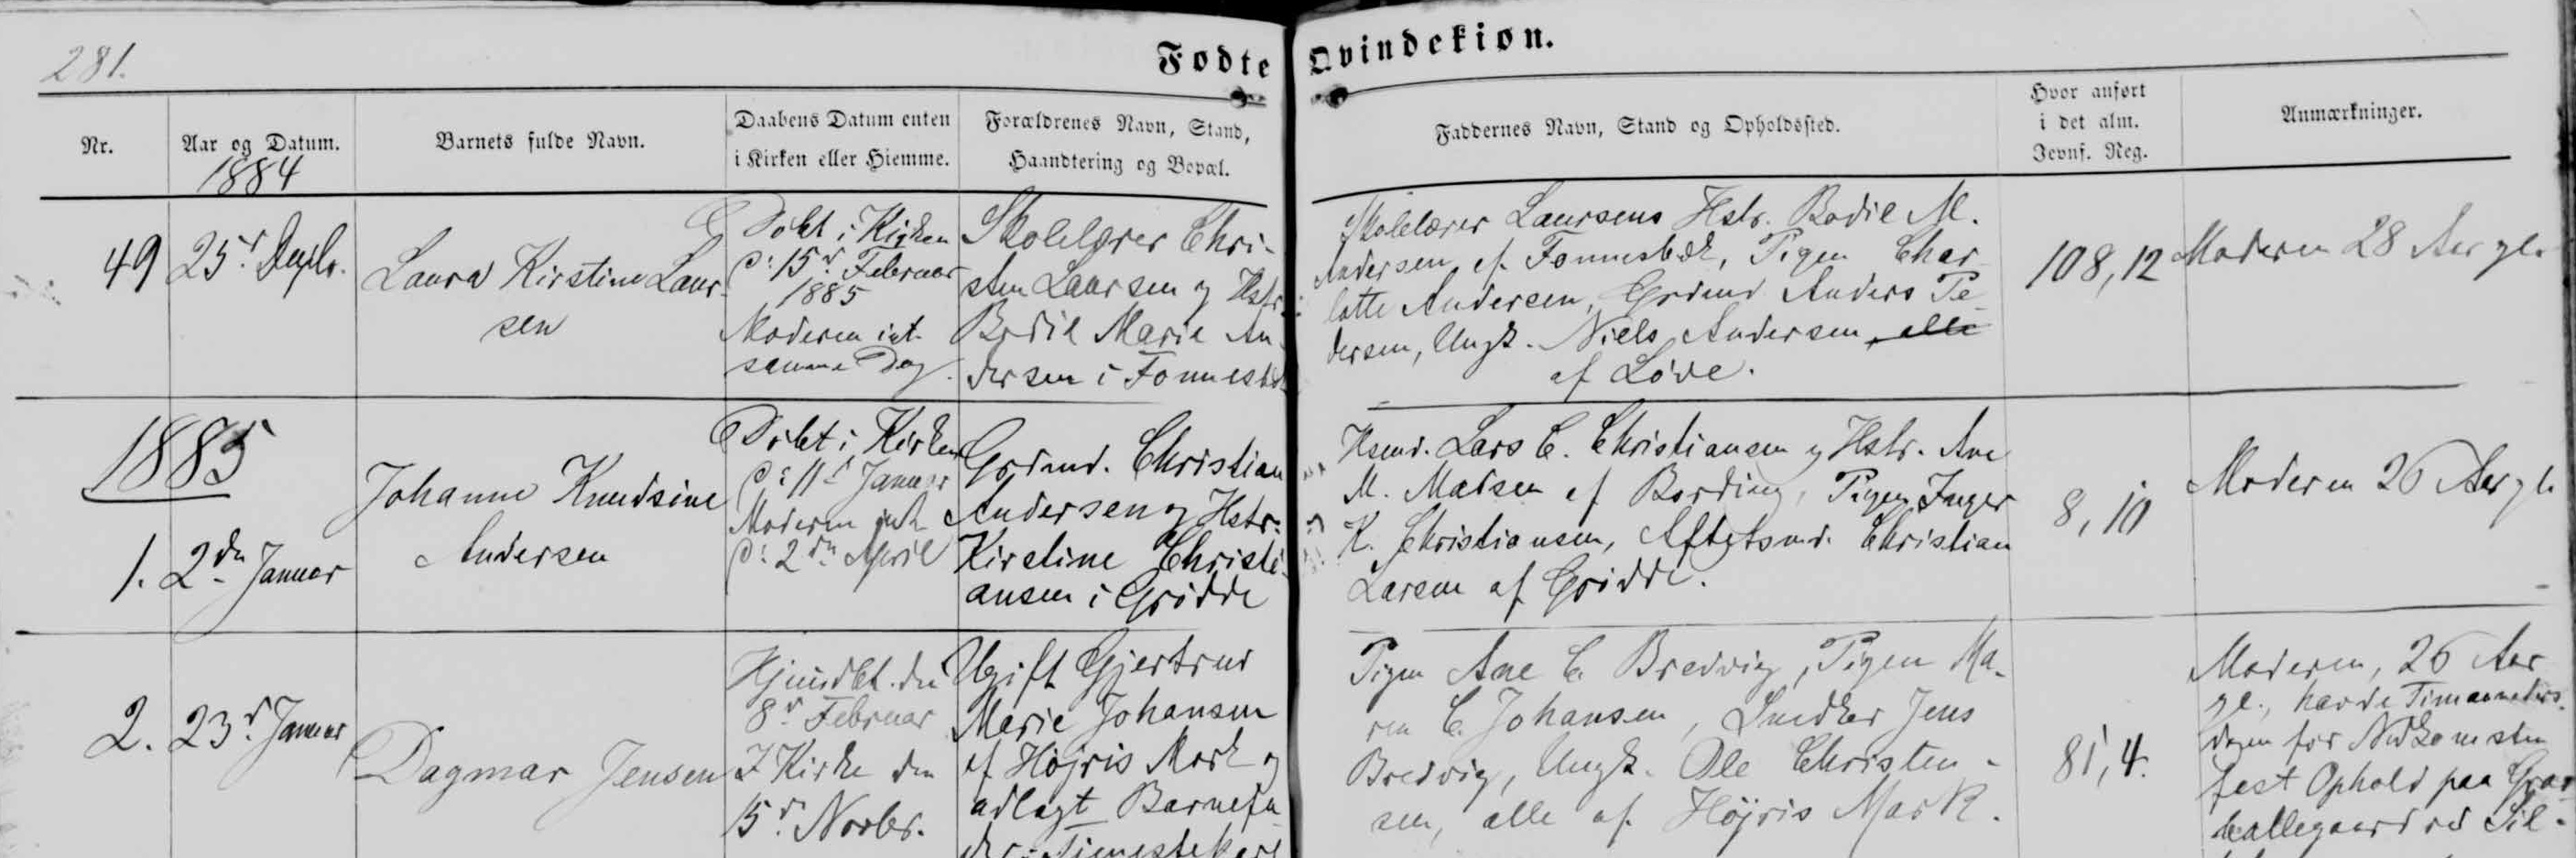 281.
Fødte Qvindekiøn.
Nr.
Aar og Datum.
1884
Barnets fulde Navn.
Daabens Datum enten
i Kirken eller Hiemme.
Forældrenes Navn, Stand,
Haandtering og Bopæl.
Faddernes Navn, Stand og Opholdssted.
Hvor anført
i det alm.
Jevnf. Reg.
Anmærkninger.
49
25d.
Laura Kirstine Laur-
sen
Døbt i Kirken
d: 15d. Februar
1885
Moderen int.
samme Dag.
Skolelærer Chri-
sten Laursen og Hstr.
Bodil Marie An-
dersen i
Skolelærer Laursens Hstr. Bodil M.
Andersen af Pigen Char-
lotte Andersen, Grdmd Anders Pe-
dersen, Ungk. Niels Andersen, alle
af Løve.
108,12
Moderen 28 Aar gl.
1885
1.
2den Januar
Johanne Knudsine
Andersen
Døbt i Kirken
d: 11d. Januar
Moderen int.
d: 2den April
Grdmd. Christian
Andersen og Hstr.
Kirstine Christi-
ansen i Grødde
Hsmd. Lars C. Christiansen og Hstr. Ane
M. Madsen af Bording, Pigen Inger
K. Christiansen, Aftgtsmd. Christian
Larsen af Grødde.
8,10
Moderen 26 Aar gl.
2.
23d. Januar
Dagmar Jensen
Hjemdbt. den
8d. Februar
I Kirke den
15d. Novbr.
Ugift Gjertrud
Marie Johansen
af Højris Mark og
udlagt Barnefa-
der Tjenestekarl
Pigen Ane C. Bredvig, Pigen Ma-
ren C. Johansen, Snedker Jens
Bredvig, Ungk. Ole Christen-
sen, alle af Højris Mark.
81,4.
Moderen, 26 Aar
gl., havde Timaaneders-
dagen før Nedkomsten
fast Ophold paa
ved Sil-